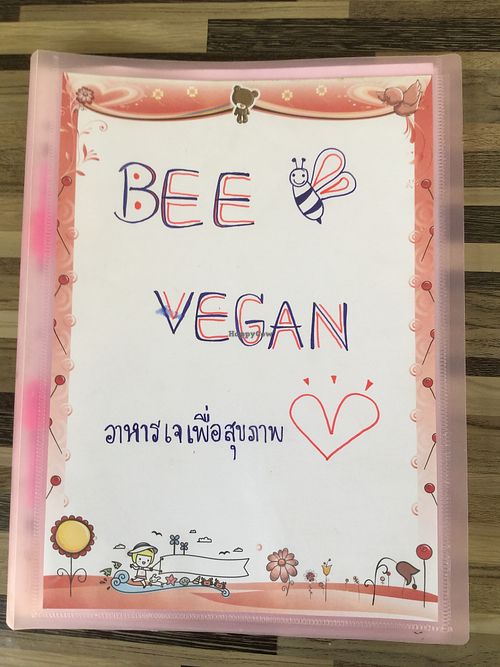 BEE
VEGAN
HappyCow
อาหารเจเพื่อสุขภาพ